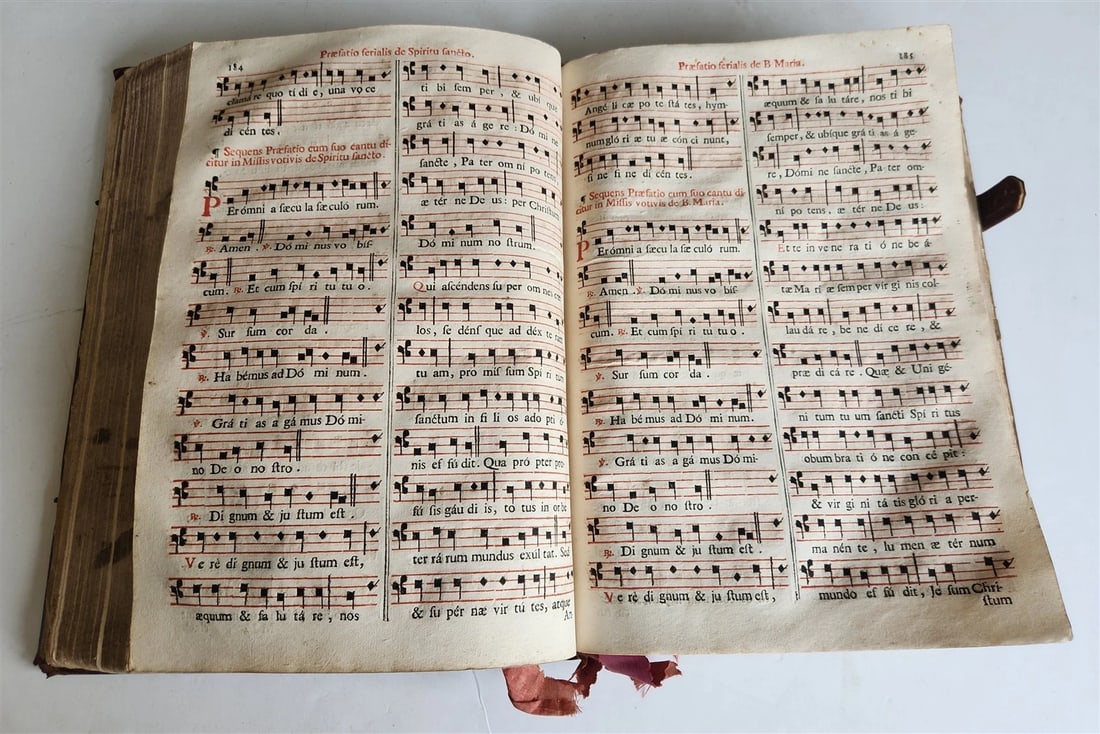 184
Præfatio ferialis de Spiritu sancto.
clamáre quo tí di e, una vo ce
di cén tes.
¶ Sequens Præfatio cum suo cantu di-
citur in Missis votivis de Spiritu sancto.
PEr ómni a sæcu la sæ culó rum.
℟. Amen. ℣. Dó mi nus vo bis-
cum. ℟. Et cum spí ri tu tu o.
℣. Sur sum cor da.
℟. Ha bémus ad Dó mi num.
℣. Grá ti as a gá mus Dó mi-
no De o no stro.
℟. Di gnum & ju stum est.
Ve re di gnum & ju stum est,
æquum & sa lu tá re, nos
ti bi sem per, & ubí que
grá ti as á ge re: Dó mi ne
sancte, Pa ter om ní po tens,
æ tér ne De us: per Christum
Dó mi num no strum.
Qui ascéndens su per om nes cæ-
los, se déns que ad déx te ram
tu am, pro mis sum Spí ri tum
sanctum in fí li os ado pti ó
nis ef fú dit. Qua pró pter pro-
fú sis gáu di is, to tus in or be
ter rá rum mundus exúl tat. Sed
& su pér næ vir tú tes, atque
An
Præfatio ferialis de B. Maria.
185
Angé li cæ po te stá tes, hym-
num gló ri æ tu æ cón ci nunt,
si ne fi ne di cén tes.
¶ Sequens Præfatio cum suo cantu di-
citur in Missis votivis de B. Maria.
PEr ómni a sæcu la sæ culó rum.
℟. Amen. ℣. Dó mi nus vo bis-
cum. ℟. Et cum spí ri tu tu o.
℣. Sur sum cor da.
℟. Ha bé mus ad Dó mi num.
℣. Grá ti as a gá mus Dó mi-
no De o no stro.
℟. Di gnum & ju stum est.
Ve rè di gnum & ju stum est,
æquum & sa lu táre, nos ti bi
semper, & ubíque grá ti as á ge-
re, Dómi ne sancte, Pa ter om-
ní po tens, æ tér ne De us:
Et te in ve ne ra ti ó ne be á-
tæ Ma rí æ sem per vír gi nis col-
lau dá re, be ne dí ce re, &
præ di cá re. Quæ & Uni gé-
ni tum tu um sancti Spí ri tus
obum bra ti ó ne con cé pit:
& vir gi ni tá tis gló ri a per-
ma nén te, lu men æ tér num
mundo ef fú dit, Je sum Chri-
stum